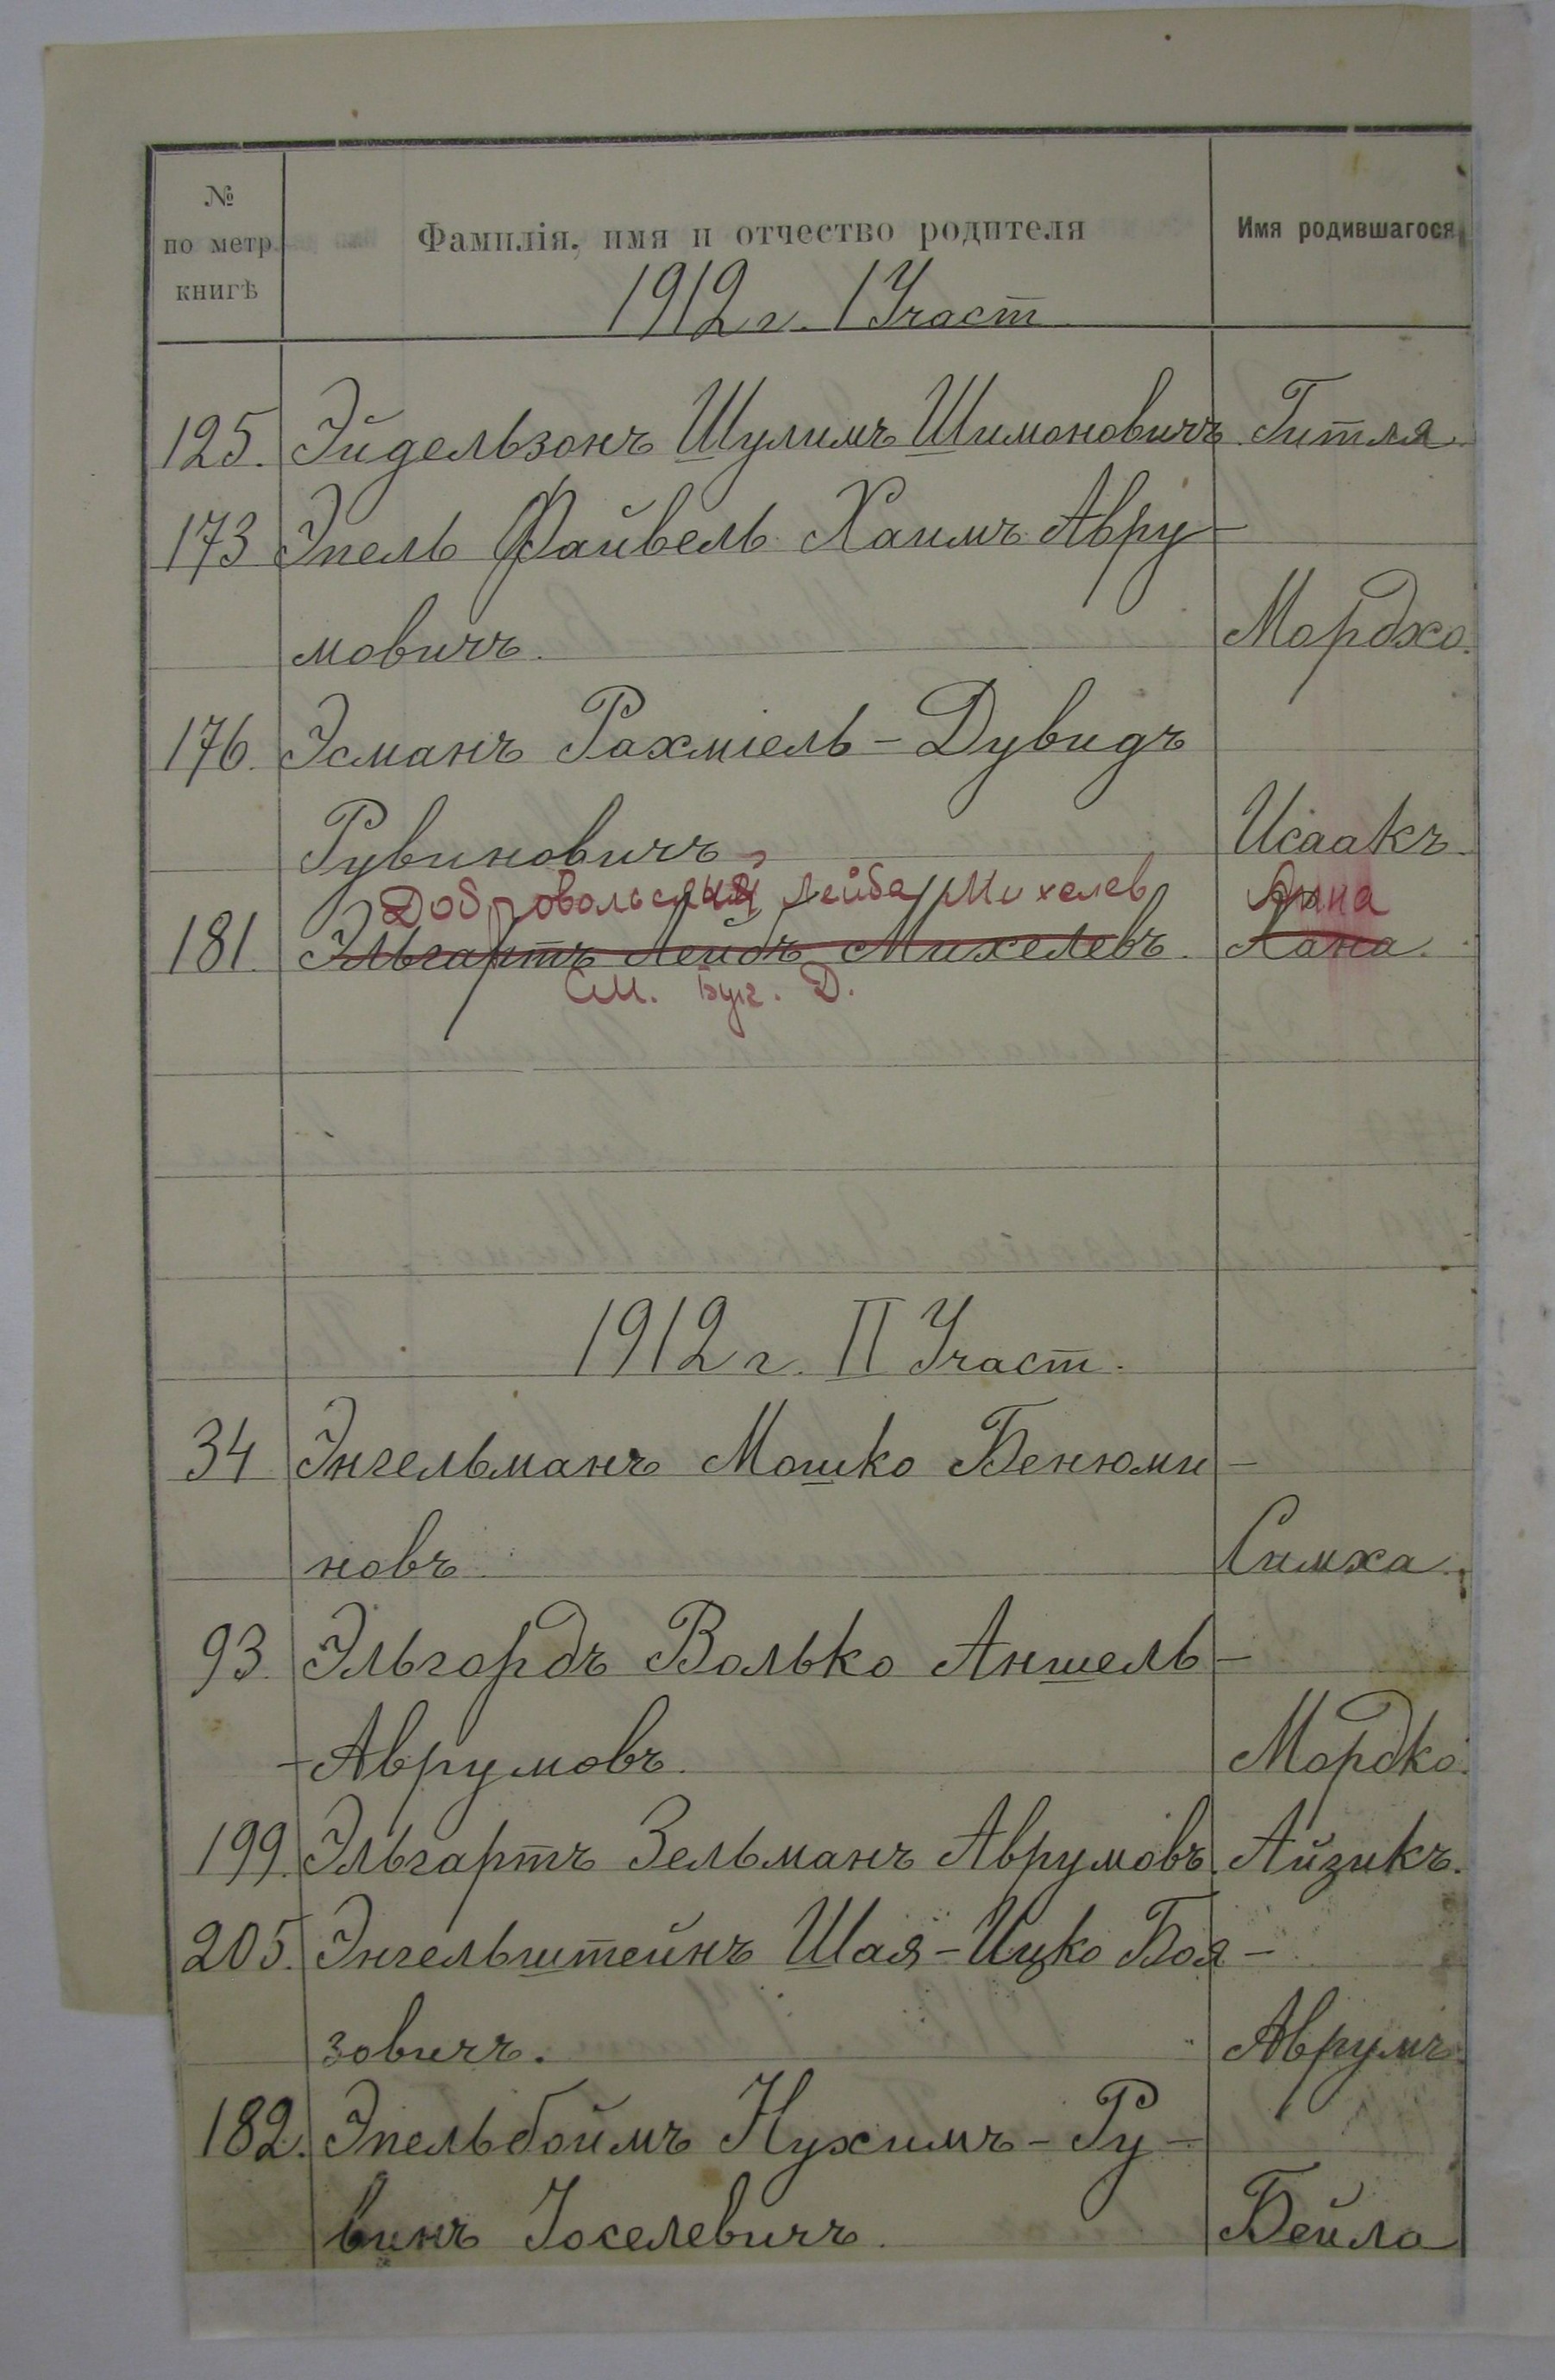 №
по метр.
книгѣ
Фамилія, имя и отчество родителя
Имя родившагося
1912 г. I Участ
125. Эйдельзонъ Шулимъ Шимоновичъ Гитля
173 Эпель Файвель Хаимъ Авру-
мовичъ. Мордхо.
176. Эсманъ Рахміель-Дувидъ
Рувиновичъ Исаакъ
Добровольский Лейба Михелев Анна
181. Эльгартъ Лейбъ Михелевъ. Хана.
См. Бук. Д.
1912 г. II Участ.
34 Энгельманъ Мошко Бенюми-
новъ Симха.
93. Эльгордъ Волько Аншель-
-Аврумовъ. Мордко.
199. Эльгартъ Зельманъ Аврумовъ. Айзикъ.
205. Энгельштейнъ Шая-Ицко Боя-
зовичъ. Аврумъ.
182. Эпельбоймъ Нухимъ-Ру-
винъ Іоселевичъ. Бейла